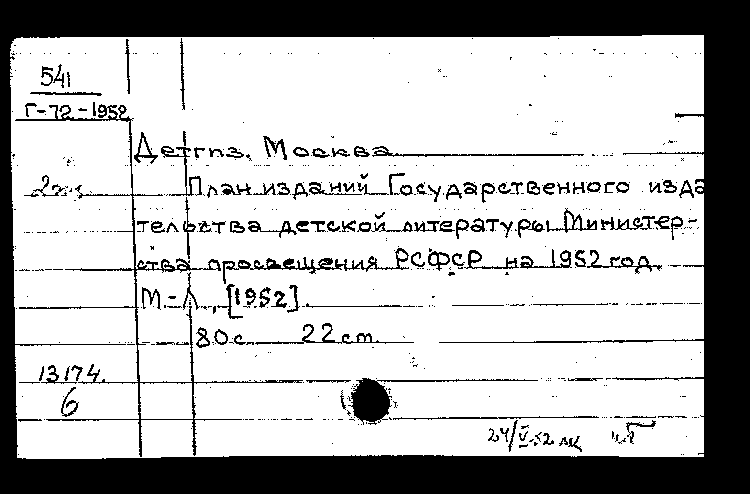 541
Г-72-1952
Детгиз. Москва
2экз
План изданий Государственного изда
тельства детской литературы Министер-
ства просвещения РСФСР на 1952 год.
М.-Л., [1952].
80с. 22 cm.
13174.
6
24/V-52